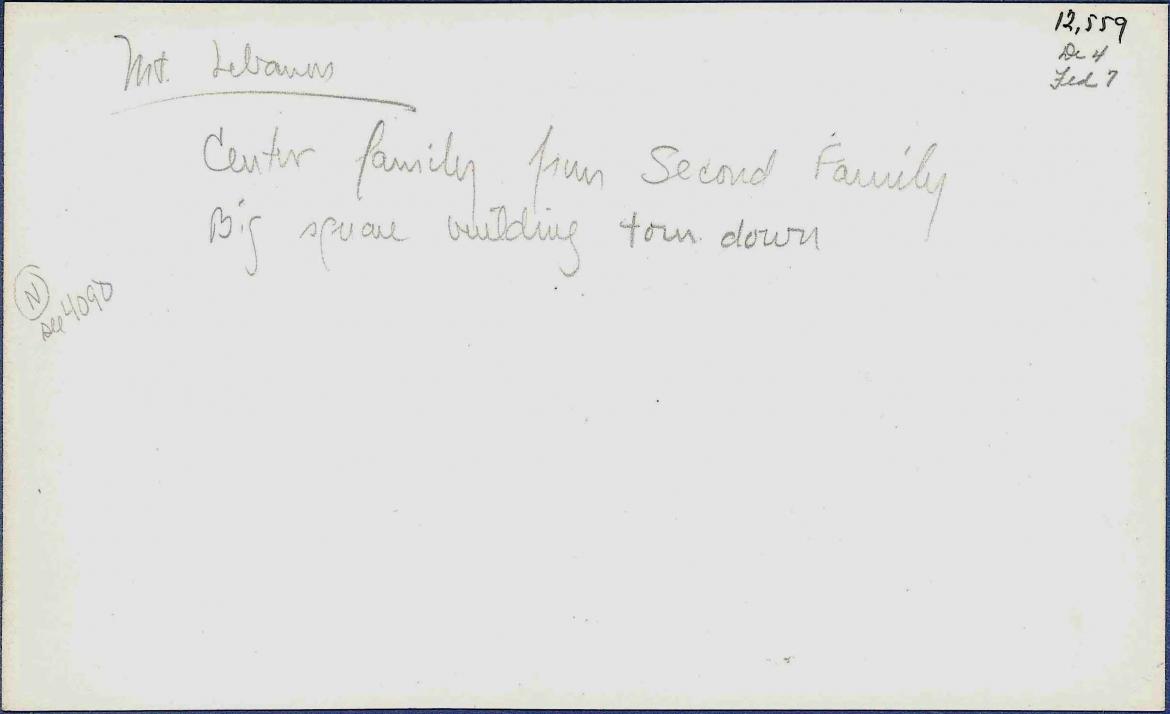 12,559
Mt. Lebanon
Center family from Second Family
Big square building torn down
N
see 4090